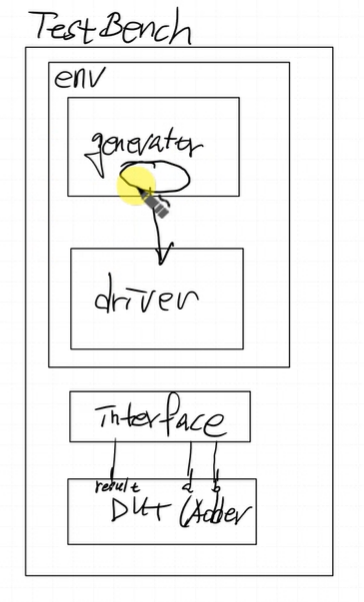 TestBench
env
generator
driver
interface
result a b
DUT (Adder